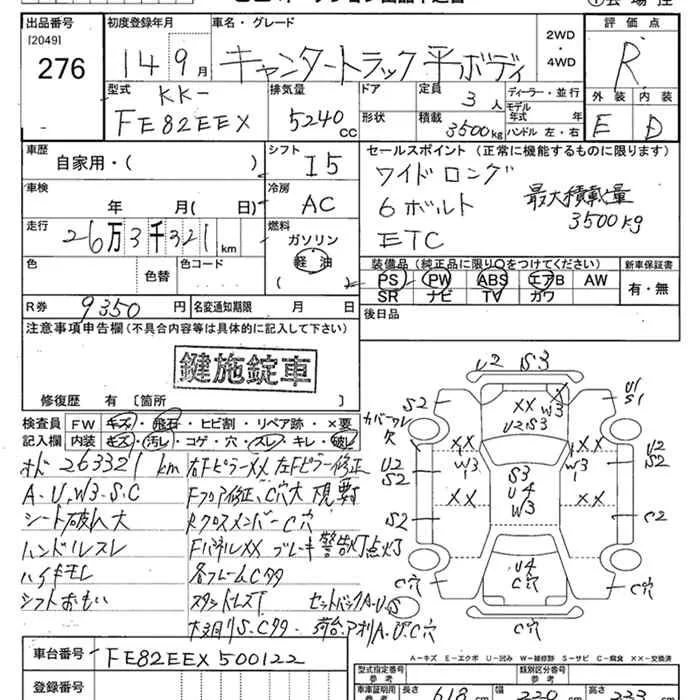 出品番号 初度登録年月 車名・グレード 2WD・4WD 評価点
[2049]
276 14 9月 キャンタートラック 平ボディ R
型式 排気量 ドア 定員 3人 ディーラー・並行 外装 内装
KK-
FE82EEX 5240cc 形状 積載 3500kg モデル年式 年 ハンドル 左・右 E D
車歴 シフト セールスポイント (正常に機能するものに限ります)
自家用・( ) I5 ワイド ロング
車検 冷房 6 ボルト 最大積載量
年 月( 日) AC 3500kg
走行 燃料 ETC
26万3千321km ガソリン
軽・油
色 色替 色コード ( 装備品 (純正品に限り〇をつけてください) 新車保証書
PS PW ABS エアB AW 有・無
SR ナビ TV カワ
R券 9350円 名変通知期限 月 日 後日品
注意事項申告欄(不具合内容等は具体的に記入して下さい)
鍵施錠車
修復歴 有 [箇所
検査員 FW キズ・飛石・ヒビ割・リペア跡・×要
記入欄 内装 キズ・汚レ・コゲ・穴・スレ・キレ・破レ
263321km 右Fピラー××左Fピラー修正
A・U,W3・S・C Fフロア修正、C穴大
シート破レ大 クロスメンバーC穴
ハンドルスレ Fパネル×× ブレーキ警告灯点灯
各フレームCサク
シフトおもい スタットレスT セットバックA・U・S
荷台,アオリA,U,C穴
U2 S3
S2 ×× W3 U1 S1
U2S3
カバーワレ 欠
×× ××
U2 S2 W3 S3 W3 U2 S2
U4
×× W3 ××
S2 C2
C穴 U4 C穴 C穴
C穴
A-キズ E-エクボ U-凹み W-補修跡 S-サビ C-腐食 ××-交換済
車台番号 FE82EEX500122
登録番号
型式指定番号 参考 類別区分番号 参考
車庫証明用 参考 長さ 618 幅 220 高さ 223